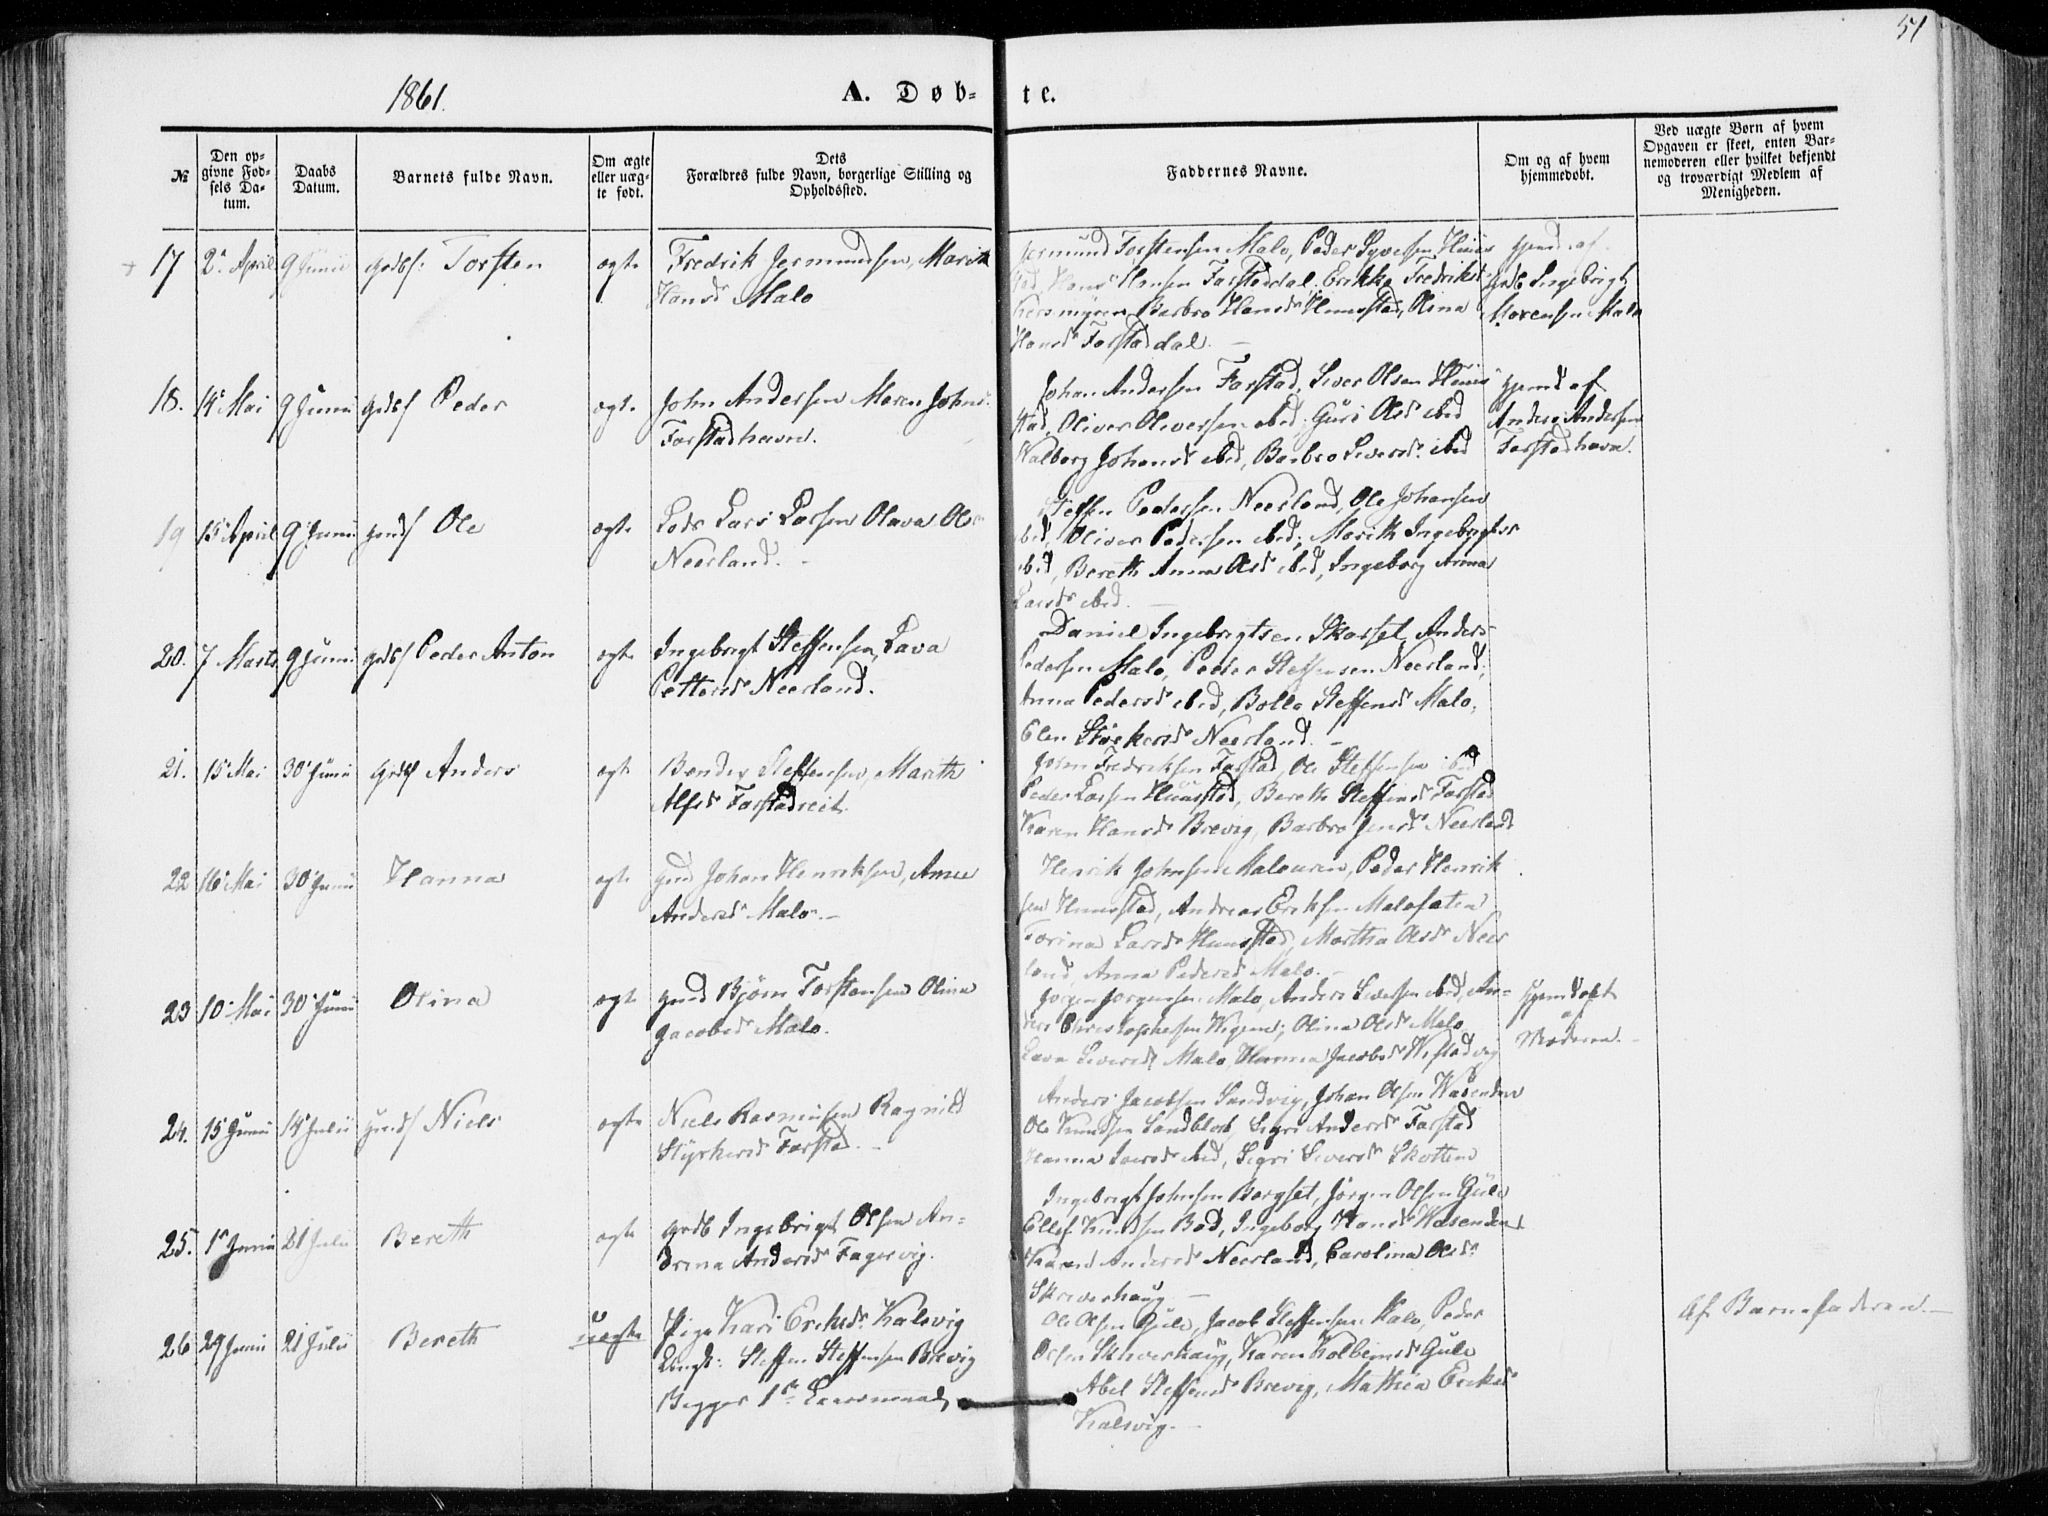 51
1861.
A. Døb-
te.
№
Den op-
givne Fød-
sels Da-
tum.
Daabs
Datum.
Barnets fulde Navn.
Om ægte
eller uæg-
te født.
Dets
Forældres fulde Navn, borgerlige Stilling og
Opholdssted.
Faddernes Navne.
Om og af hvem
hjemmedøbt.
Ved uægte Børn af hvem
Opgaven er skeet, enten Bar-
nemoderen eller hvilket bekjendt
og troværdigt Medlem af
Menigheden.
17 2. April 9 Junii Torsten ægte Fredrik Jermundsen, Marith
Hansd Malo
Jermund Torstensen Malo, Peder Hans Hansen Farstaddal, Erikka Fredriksd
Barbro Hansd Hunsstad, Olina
Hansd Farstaddal.
Ingebrigt
Malo
18. 14 Mai 9 Junii Peder ægte John Andersen Maren Johnsd
Farstadhavn.
Johan Andersen Farstad, Siver Olsen Huns
stad, Oliver Oliversen ibid, Guri Olsd ibid
Johansd ibid, Barbro Siversd ibid
hjemd af
Anders Andersen
Farstadhavn.
19 15 April 9 Junii Ole ægte Lods Lars Larsen Olava Ols
Neerland.
Steffen Pedersen Neerland, Ole Johansen
ibid, Oliver Pedersen ibid, Marith Ingebrigtsd
ibid, Bereth Anna Olsd ibid, Ingeborg Anna
Larsd ibid.
20. 7 Marts 9 Junii Peder Anton ægte Ingebrigt Steffensen, Lava
Pettersd Neerland.
Daniel Ingebrigtsen Skarset, Anders
Pedersen Malo, Peder Steffensen Neerland,
Anna Pedersd ibid, Steffensd Malo,
Elen Neerland.
21. 15 Mai 30 Junii Anders ægte Steffensen, Marith
Alfsd Farstadreit
John Fredriksen Farstad, Ole Steffensen ibid
Peder Larsen Hunsstad, Bereth Steffensd Farstad
Karen Hansd Brevig, Barbro Jensd Neerland
22 16 Mai 30 Junii Hanna ægte Johan Henriksen, Anne
Andersd Malo.
Henrik Johnsen Peder Henrik
sen Hunsstad, Andreas Eriksen
Larsd Hunsstad, Martha Olsd Neer
land, Anna Pedersd Malo.
23 10 Mai 30 Junii Olina ægte Bjørn Torstensen Olina
Jacobsd Malo.
Jørgen Jørgensen Malo, Anders Siversen ibid, An-
ders Christophersen Olina Olsd Malo
Lava Siversd Malo, Hanna Jacobsd
Hjemdøbt
af
Moderen.
24. 15 Junii 14 Julii Niels ægte Niels Rasmussen Ragnild
Styrkersd Farstad.
Anders Jacobsen Sandvig, Johan Olsen
Ole Knudsen Sandblost, Sigri Andersd Farstad
Hanna ibid, Sigri Siversd
25. 1 Junii 21 Julii Bereth ægte Ingebrigt Olsen An-
drina Andersd Fagervig.
Ingebrigt Johnsen Bergset, Jørgen Olsen Gule
Ellef Knudsen Ingeborg Hansd
Karen Andersd Neerland, Carolina Olsd
Skiverhaug
26 29 Junii 21 Julii Bereth uægte Pige Kari Eriksd Kalsvig
Ungk. Steffen Steffensen Brevig
Begges 1ste Leiermaal
Ole Olsen Gule, Jacob Steffensen Malo, Peder
Olsen Skiverhaug, Karen Kolbeinsd Gule
Abel Steffensd Brevig, Mathea Eriksd
Kalsvig.
Af Barnefaderen.